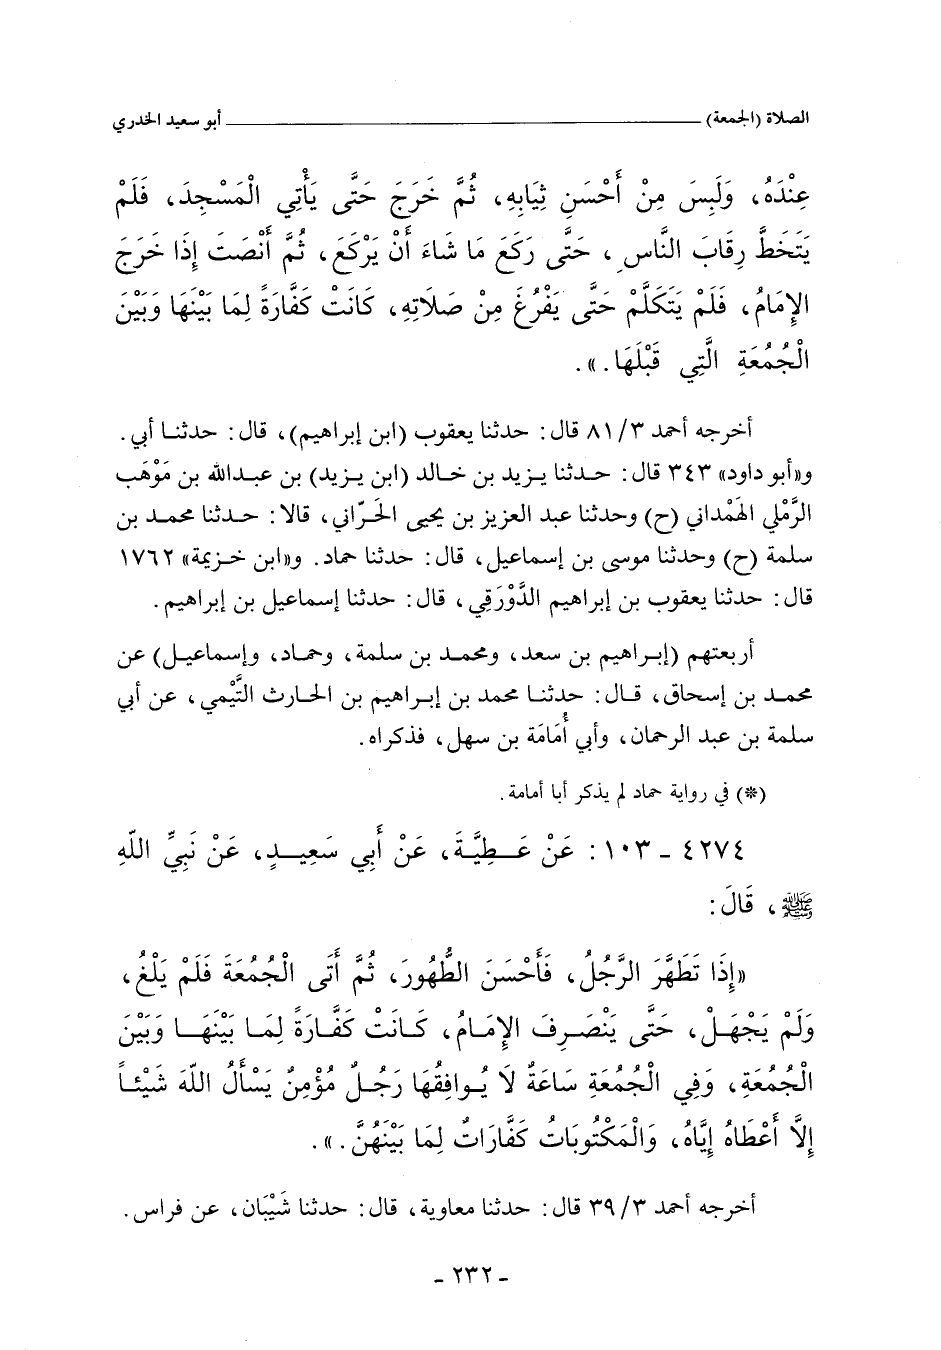 الصلاة (الجمعة) ــــــــــــــــــــــــــــــــــــــــ أبو سعيد الخدري
عِنْدَهُ، وَلَبِسَ مِنْ أَحْسَنِ ثِيَابِهِ، ثُمَّ خَرَجَ حَتَّى يَأْتِيَ الْمَسْجِدَ، فَلَمْ
يَتَخَطَّ رِقَابَ النَّاسِ، حَتَّى رَكَعَ مَا شَاءَ أَنْ يَرْكَعَ، ثُمَّ أَنْصَتَ إِذَا خَرَجَ
الإِمَامُ، فَلَمْ يَتَكَلَّمْ حَتَّى يَفْرُغَ مِنْ صَلَاتِهِ، كَانَتْ كَفَّارَةً لِمَا بَيْنَهَا وَبَيْنَ
الْجُمُعَةِ الَّتِي قَبْلَهَا.».
أخرجه أحمد ٨١/٣ قال: حدثنا يعقوب (ابن إبراهيم)، قال: حدثنا أبي.
و«أبو داود» ٣٤٣ قال: حدثنا يزيد بن خالد (ابن يزيد) بن عبدالله بن مَوْهَب
الرَّمْلي الهَمْداني (ح) وحدثنا عبد العزيز بن يحيى الحَرّاني، قالا: حدثنا محمد بن
سلمة (ح) وحدثنا موسى بن إسماعيل، قال: حدثنا حماد. و«ابن خزيمة» ١٧٦٢
قال: حدثنا يعقوب بن إبراهيم الدَّوْرَقِي، قال: حدثنا إسماعيل بن إبراهيم.
أربعتهم (إبراهيم بن سعد، ومحمد بن سلمة، وحماد، وإسماعيل) عن
محمد بن إسحاق، قال: حدثنا محمد بن إبراهيم بن الحارث التَّيْمي، عن أبي
سلمة بن عبد الرحمان، وأبي أُمَامَة بن سهل، فذكراه.
(*) في رواية حماد لم يذكر أبا أمامة.
٤٢٧٤ - ١٠٣: عَنْ عَطِيَّةَ، عَنْ أَبِي سَعِيدٍ، عَنْ نَبِيِّ اللَّهِ
ﷺ، قَالَ:
«إِذَا تَطَهَّرَ الرَّجُلُ، فَأَحْسَنَ الطُّهُورَ، ثُمَّ أَتَى الْجُمُعَةَ فَلَمْ يَلْغُ،
وَلَمْ يَجْهَلْ، حَتَّى يَنْصَرِفَ الإِمَامُ، كَانَتْ كَفَّارَةً لِمَا بَيْنَهَا وَبَيْنَ
الْجُمُعَةِ، وَفِي الْجُمُعَةِ سَاعَةٌ لَا يُوافِقُهَا رَجُلٌ مُؤْمِنٌ يَسْأَلُ اللَّهَ شَيْئاً
إِلَّا أَعْطَاهُ إِيَّاهُ، وَالْمَكْتُوبَاتُ كَفَّارَاتٌ لِمَا بَيْنَهُنَّ.».
أخرجه أحمد ٣٩/٣ قال: حدثنا معاوية، قال: حدثنا شَيْبَان، عن فراس.
- ٢٣٢ -